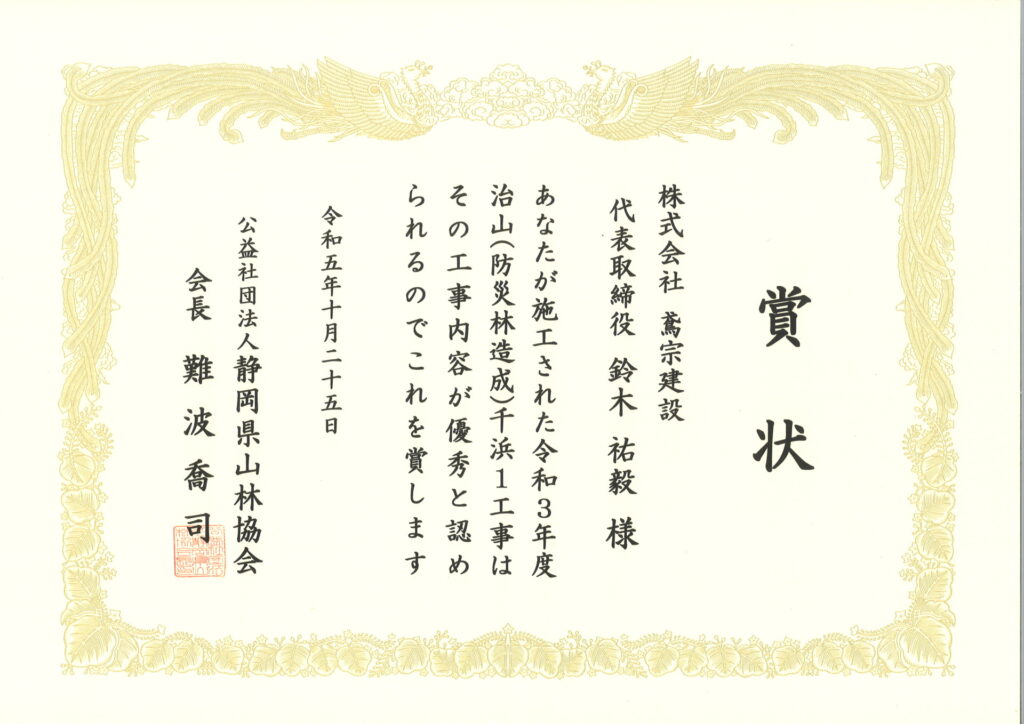 賞状
株式会社 鳶宗建設
代表取締役 鈴木 祐毅 様
あなたが施工された令和3年度
治山(防災林造成)千浜1工事は
その工事内容が優秀と認め
られるのでこれを賞します
令和五年十月二十五日
公益社団法人静岡県山林協会
会長 難波喬司